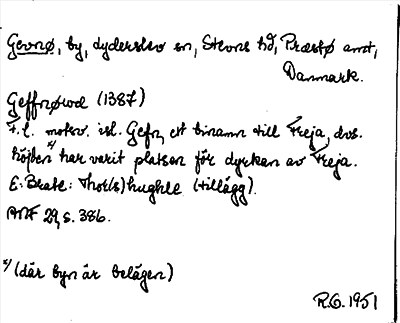 Gevnø, by, Lyderslev sn, Stevns hd, Præstø amt,
Danmark.
Geffnørwd (1387)
F.l. motsv. isl. Gefn, ett binamn till Freja, dvs.
höjden x) har varit platsen för dyrkan av Freja.
E: Beate: Thor(s)hughle (tillägg).
ANF 29, s. 386.
x) (där byn är belägen)
R.G. 1951